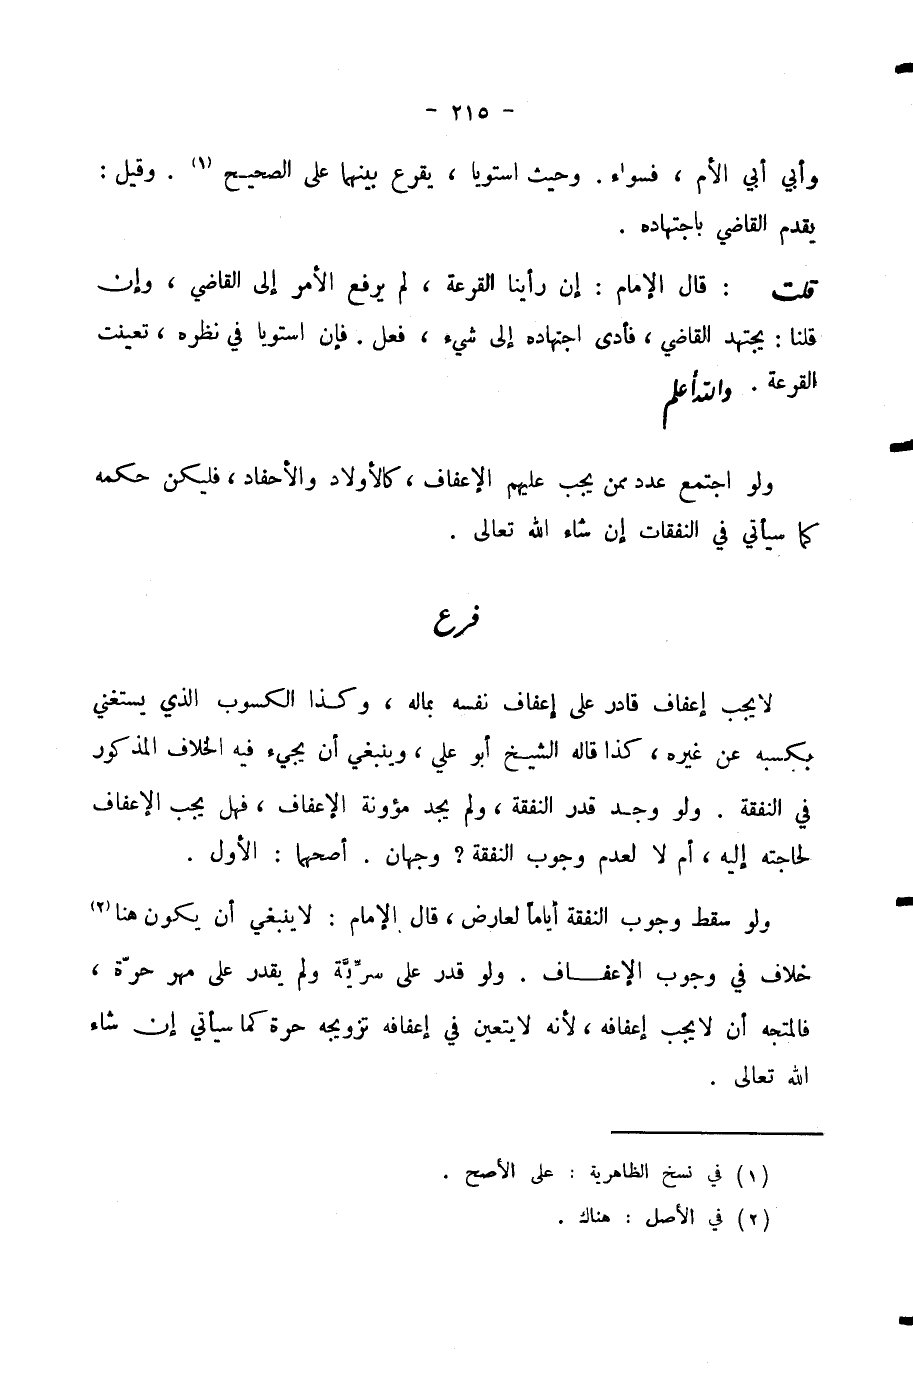 - ٢١٥ -
وأبي أبي الأم ، فسواء . وحيث استويا ، يقرع بينهما على الصحيح (١) . وقيل :
يقدم القاضي باجتهاده .
قلت : قال الإمام : إن رأينا القرعة ، لم يرفع الأمر إلى القاضي ، وإن
قلنا : يجتهد القاضي ، فأدى اجتهاده إلى شيء ، فعل . فإن استويا في نظره ، تعينت
القرعة . والله أعلم
ولو اجتمع عدد ممن يجب عليهم الإعفاف ، كالأولاد والأحفاد ، فليكن حكمه
كما سيأتي في النفقات إن شاء الله تعالى .
فرع
لا يجب إعفاف قادر على إعفاف نفسه بماله ، وكذا الكسوب الذي يستغني
بكسبه عن غيره ، كذا قاله الشيخ أبو علي ، وينبغي أن يجيء فيه الخلاف المذكور
في النفقة . ولو وجد قدر النفقة ، ولم يجد مؤونة الإعفاف ، فهل يجب الإعفاف
لحاجته إليه ، أم لا لعدم وجوب النفقة ? وجهان . أصحهما : الأول .
ولو سقط وجوب النفقة أياماً لعارض ، قال الإمام : لا ينبغي أن يكون هنا (٢)
خلاف في وجوب الإعفاف . ولو قدر على سرِّيَّة ولم يقدر على مهر حرّة ،
فالمتجه أن لا يجب إعفافه ، لأنه لا يتعين في إعفافه تزويجه حرة كما سيأتي إن شاء
الله تعالى .
(١) في نسخ الظاهرية : على الأصح .
(٢) في الأصل : هناك .